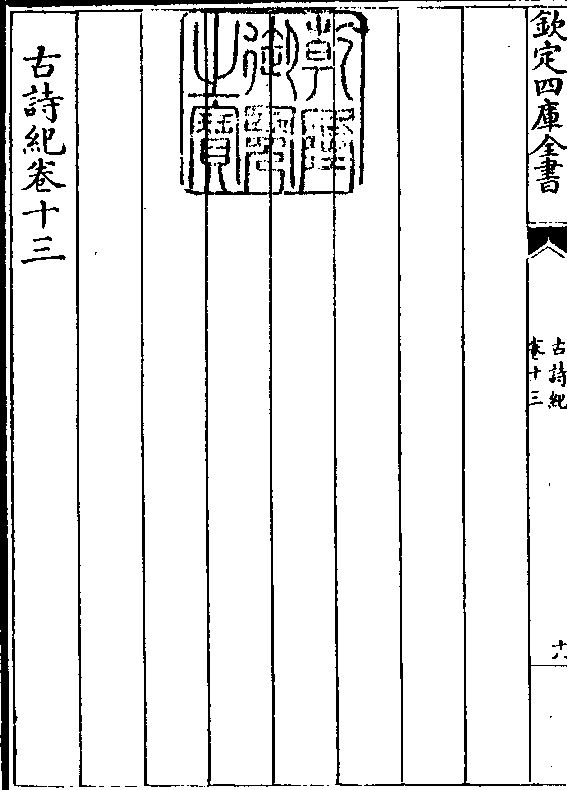 欽定四庫全書
古詩紀
卷十三
十八
乾隆御覽之寶
古詩紀卷十三